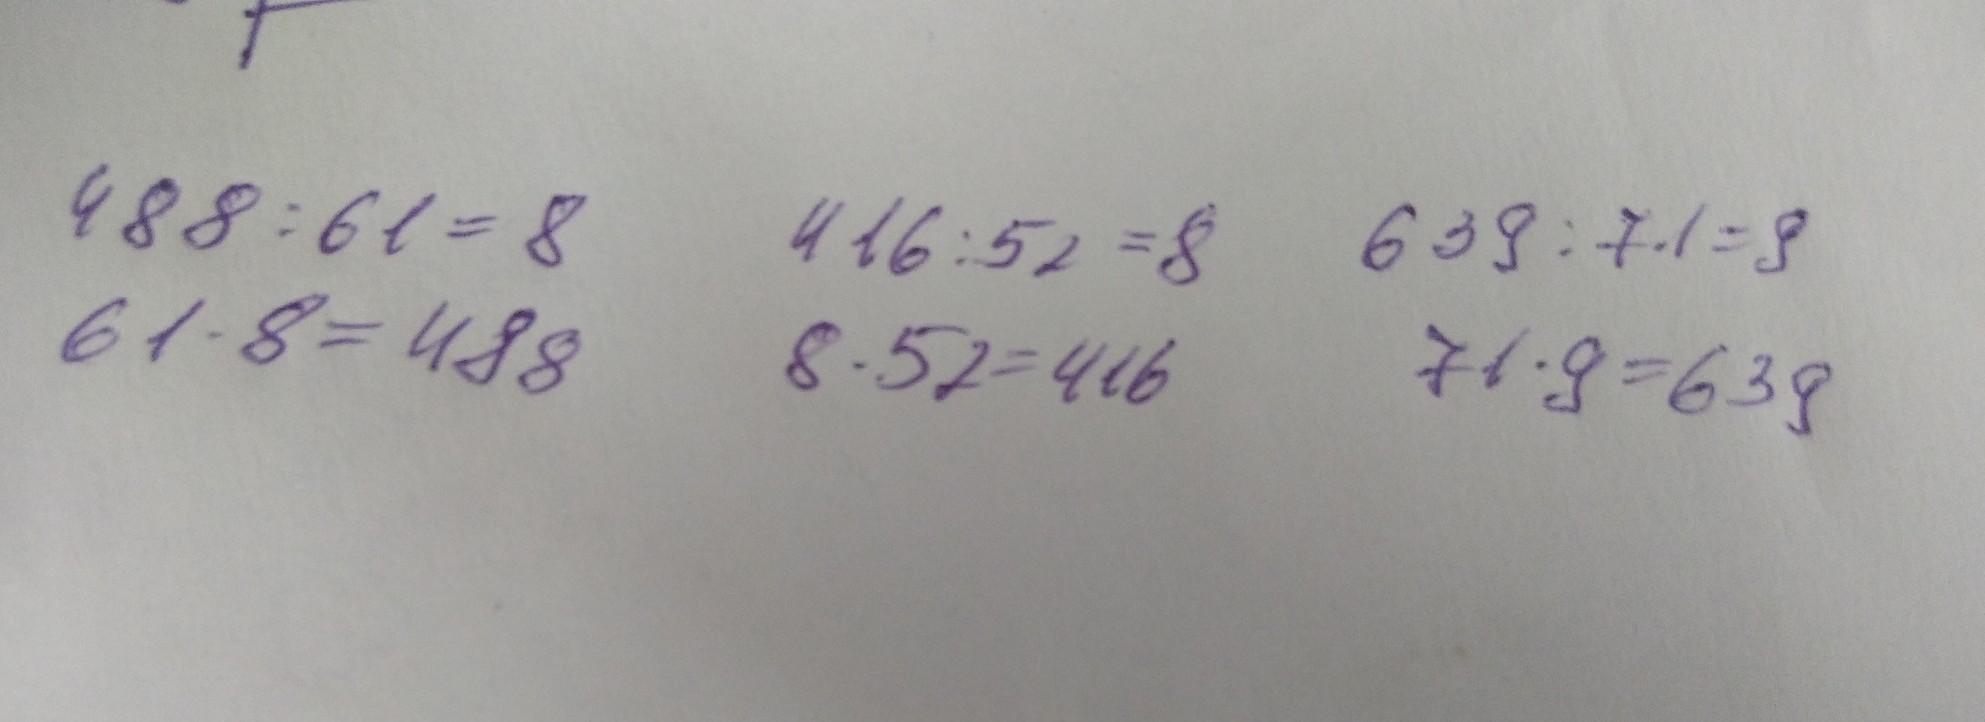 488:61=8 416:52=8 639:7.1=9
61·8=488 8·52=416 71·9=639